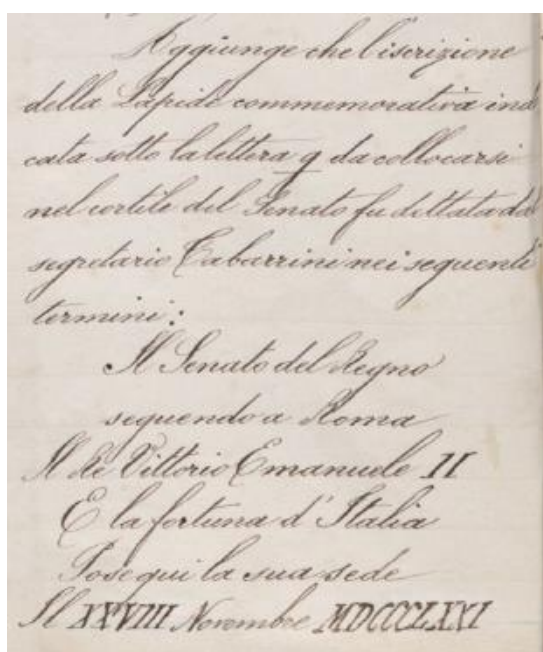 Aggiunge che l'iscrizione
della Lapide commemorativa indi
cata sotto la lettera q da collocarsi
nel cortile del Senato fu dettata dal
segretario Tabarrini nei seguenti
termini:
Il Senato del Regno
seguendo a Roma
Il Re Vittorio Emanuele II
E la fortuna d'Italia
Pose qui la sua sede
Il XXVIII Novembre MDCCCLXXI